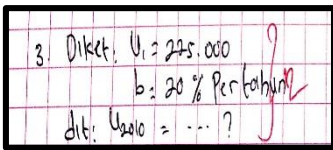 3. Diket: U₁ = 225.000
b = 20 % Pertahun
dit: U₂₀₁₀ = ... ?